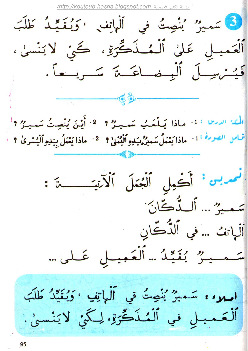 3 سَمِيرٌ يُنْصِتُ فِي ٱلْهَاتِفِ، وَيُقَيِّدُ طَلَبَ
ٱلْعَمِيلِ عَلَى ٱلْمُذَكِّرَةِ، كَيْ لَا يَنْسَى،
فَيُرْسِلَ ٱلْبِضَاعَةَ سَرِيعاً.
1- مَاذَا يَلْعَبُ سَمِيرٌ؟ 2- أَيْنَ يُنْصِتُ سَمِيرٌ؟
مَاذَا يَعْمَلُ سَمِيرٌ بِيَدِهِ ٱلْيُمْنَى؟ مَاذَا يَعْمَلُ بِيَدِهِ ٱلْيُسْرَى؟
تَمْرِين: أَكْمِلِ ٱلْجُمَلَ ٱلْآتِيَةَ:
سَمِيرٌ ... ٱلدُّكَّانَ
ٱلْهَاتِفُ ... فِي ٱلدُّكَّانِ
سَمِيرٌ يُقَيِّدُ ... ٱلْعَمِيلِ عَلَى ...
إملاء: سَمِيرٌ يُنْصِتُ فِي ٱلْهَاتِفِ، وَيُقَيِّدُ طَلَبَ
ٱلْعَمِيلِ فِي ٱلْمُذَكِّرَةِ، لِكَيْ لَا يَنْسَى
95